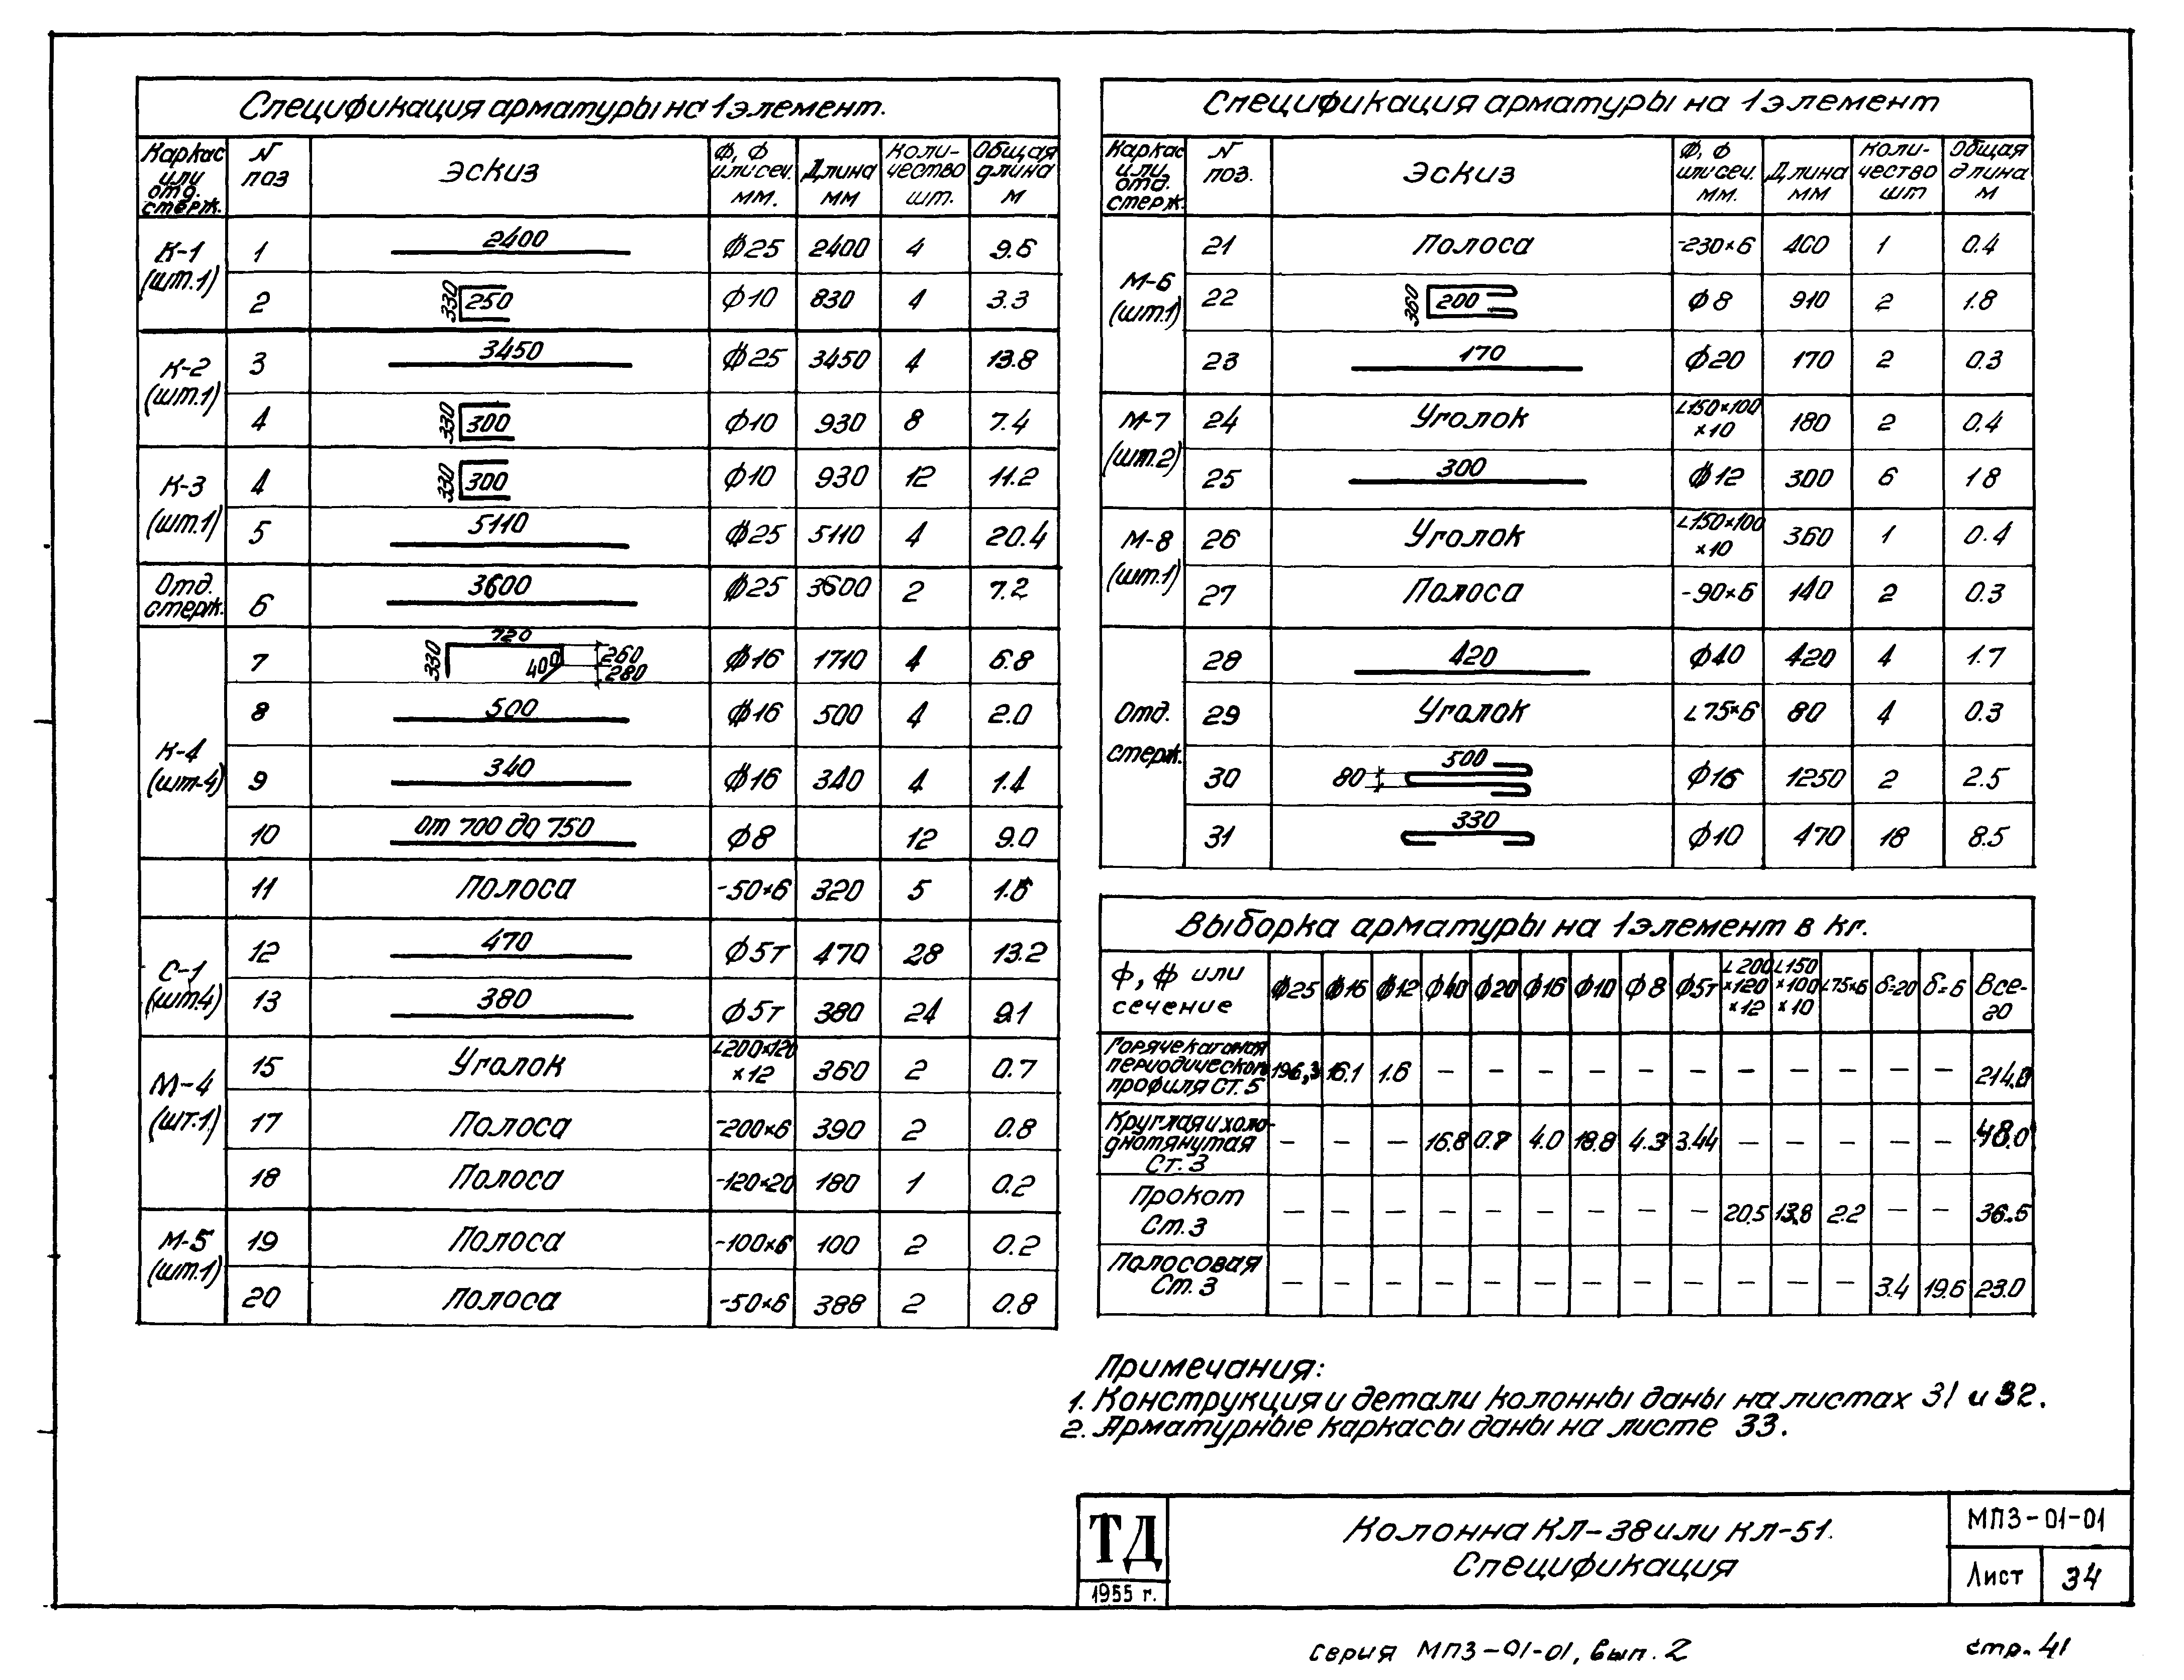 Спецификация арматуры на 1 элемент.
Каркас или отд. стерж. | N поз | Эскиз | ф, ф или сеч. мм. | Длина мм | Количество шт. | Общая длина м
К-1 (шт.1) | 1 | 2400 | ф25 | 2400 | 4 | 9.6
2 | 330 250 | ф10 | 830 | 4 | 3.3
К-2 (шт.1) | 3 | 3450 | ф25 | 3450 | 4 | 13.8
4 | 330 300 | ф10 | 930 | 8 | 7.4
К-3 (шт.1) | 4 | 330 300 | ф10 | 930 | 12 | 11.2
5 | 5110 | ф25 | 5110 | 4 | 20.4
Отд. стерж. | 6 | 3600 | ф25 | 3600 | 2 | 7.2
К-4 (шт-4) | 7 | 330 720 400 260 280 | ф16 | 1710 | 4 | 6.8
8 | 500 | ф16 | 500 | 4 | 2.0
9 | 340 | ф16 | 340 | 4 | 1.4
10 | от 700 до 750 | ф8 | 12 | 9.0
11 | Полоса | -50×6 | 320 | 5 | 1.6
С-1 (шт4) | 12 | 470 | ф5т | 470 | 28 | 13.2
13 | 380 | ф5т | 380 | 24 | 9.1
М-4 (шт.1.) | 15 | Уголок | L200×120×12 | 360 | 2 | 0.7
17 | Полоса | -200×6 | 390 | 2 | 0.8
18 | Полоса | -120×20 | 180 | 1 | 0.2
М-5 (шт.1) | 19 | Полоса | -100×6 | 100 | 2 | 0.2
20 | Полоса | -50×6 | 388 | 2 | 0.8
Спецификация арматуры на 1 элемент
Каркас или отд. стерж. | N поз. | Эскиз | ф, ф или сеч. мм. | Длина мм | Количество шт | Общая длина м
М-6 (шт.1) | 21 | Полоса | -230×6 | 400 | 1 | 0.4
22 | 360 200 | ф8 | 910 | 2 | 1.8
23 | 170 | ф20 | 170 | 2 | 0.3
М-7 (шт.2) | 24 | Уголок | L150×100×10 | 180 | 2 | 0.4
25 | 300 | ф12 | 300 | 6 | 1 8
М-8 (шт.1) | 26 | Уголок | L150×100×10 | 360 | 1 | 0.4
27 | Полоса | -90×6 | 140 | 2 | 0.3
Отд. стерж. | 28 | 420 | ф40 | 420 | 4 | 1.7
29 | Уголок | L75×6 | 80 | 4 | 0.3
30 | 80 500 | ф16 | 1250 | 2 | 2.5
31 | 330 | ф10 | 470 | 18 | 8.5
Выборка арматуры на 1 элемент в кг.
ф, ф или сечение | ф25 | ф16 | ф12 | ф40 | ф20 | ф16 | ф10 | ф8 | ф5т | L200×120×12 | L150×100×10 | L75×6 | δ=20 | δ=6 | Всего
Горячекатаная периодического профиля Ст.5 | 196,3 | 16.1 | 1.6 | – | – | – | – | – | – | – | – | – | – | – | 214,0
Круглая и холоднотянутая Ст.3 | – | – | – | 16.8 | | 4.0 | 18.8 | 4.3 | 3.44 | – | – | – | – | – | 48.0
Прокот Ст.3 | – | – | – | – | – | – | – | – | – | 20.5 | 13.8 | 2.2 | – | – | 36.5
Полосовая Ст.3 | – | – | – | – | – | – | – | – | – | – | – | – | 3.4 | 19.6 | 23.0
Примечания:
1. Конструкция и детали колонны даны на листах 31 и 32.
2. Арматурные каркасы даны на листе 33.
ТД
1955 г.
Колонна КЛ-38 или КЛ-51.
Спецификация
МПЗ-01-01
Лист 34
серия МПЗ-01-01, вып. 2
стр. 41